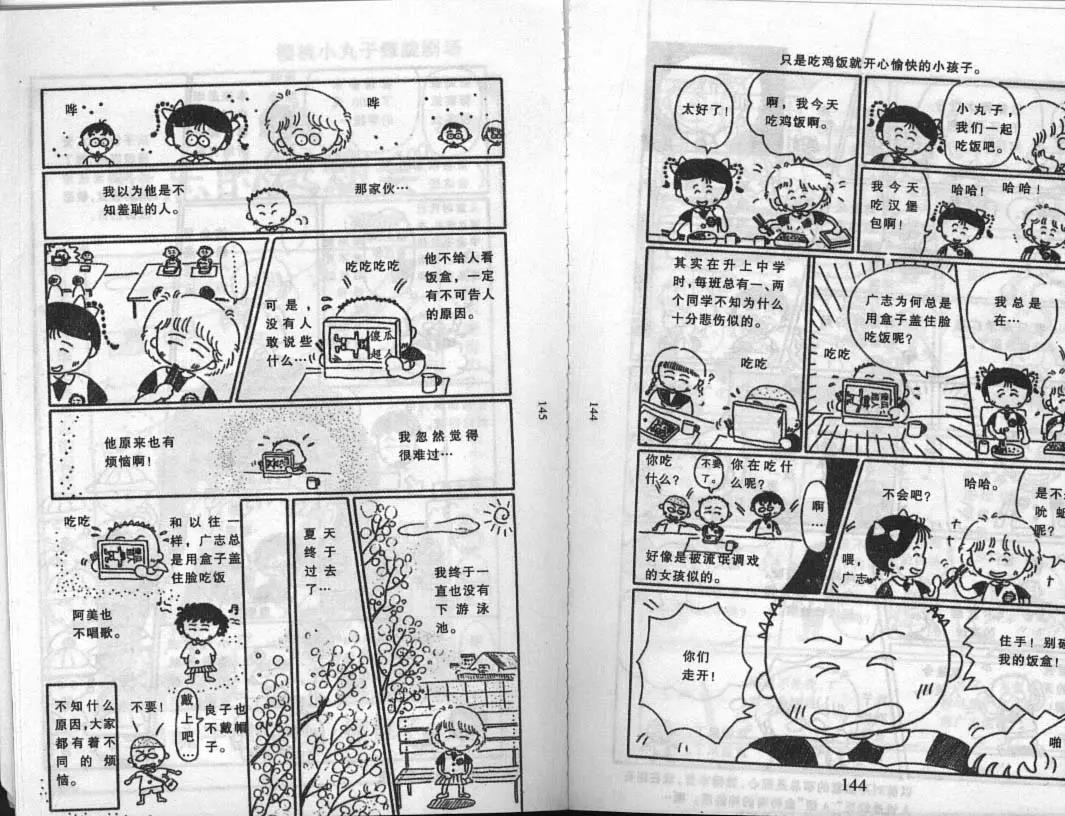 只是吃鸡饭就开心愉快的小孩子。
小丸子，
我们一起
吃饭吧。
哈哈！
哈哈！
我今天
吃汉堡
包啊！
啊，我今天
吃鸡饭啊。
太好了！
我总是
在…
广志为何总是
用盒子盖住脸
吃饭呢？
吃吃
其实在升上中学
时，每班总有一、两
个同学不知为什么
十分悲伤似的。
?
吃吃
是不
呢？
哈哈。
不会吧？
喂，
广志
啊
…
你在吃什
么呢？
不要
了。
你吃
什么？
好像是被流氓调戏
的女孩似的。
住手！别
我的饭盒！
啪
你们
走开！
144
144
145
哗
哗
那家伙…
我以为他是不
知羞耻的人。
他不给人看
饭盒，一定
有不可告人
的原因。
吃吃吃吃
傻瓜
超人
可是，
没有人
敢说些
什么…
………
我忽然觉得
很难过…
他原来也有
烦恼啊！
我终于一
直也没有
下游泳
池。
夏天
终于
过去
了…
和以往一
样，广志总
是用盒子盖
住脸吃饭
吃吃
阿美也
不唱歌。
良子也
不戴帽
子。
戴上吧…
不要！
不知什么
原因，大家
都有着不
同的烦
恼。